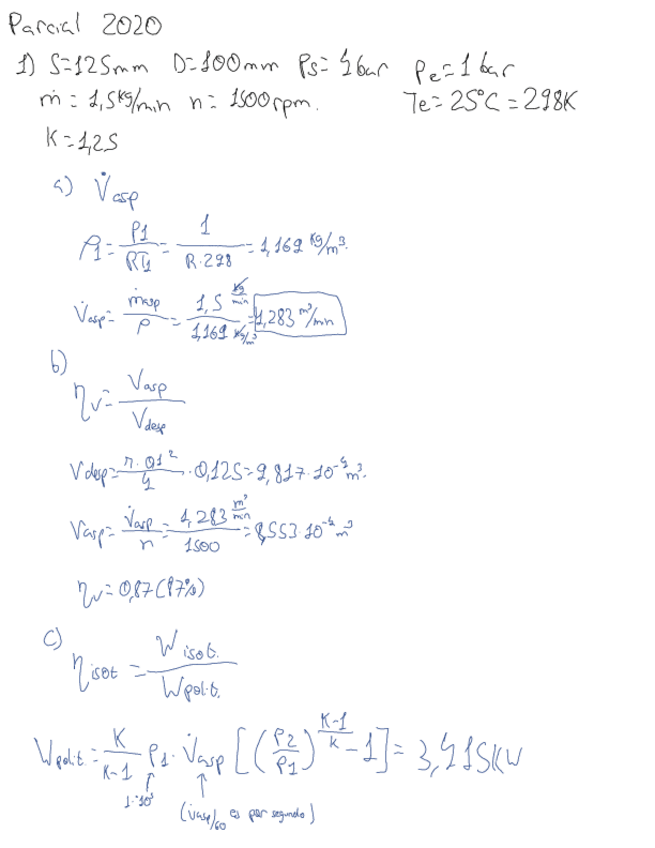 Parcial 2020
1) S=125mm D=100mm Ps=4bar Pe=1bar
ṁ=1,5kg/min n=1500rpm. Te=25°C=298K
K=1,25
a) V̇asp
ρ1 = P1/RT1 = 1/R·298 = 1,169 kg/m³.
V̇asp = ṁasp/ρ = 1,5 kg/min / 1,169 kg/m³ = 1,283 m³/min
b)
ηv = Vasp/Vdesp
Vdesp = π·0,1²/4 · 0,125 = 9,817·10⁻⁴ m³.
Vasp = V̇asp/n = 1,283 m³/min / 1500 = 8,553·10⁻⁴ m³
ηv = 0,87 (87%)
c)
ηisot = Wisot./Wpolit.
Wpolit. = K/K-1 P1· V̇asp [(P2/P1)^(K-1/K) -1] = 3,415KW
(v̇asp/60 es por segundo)